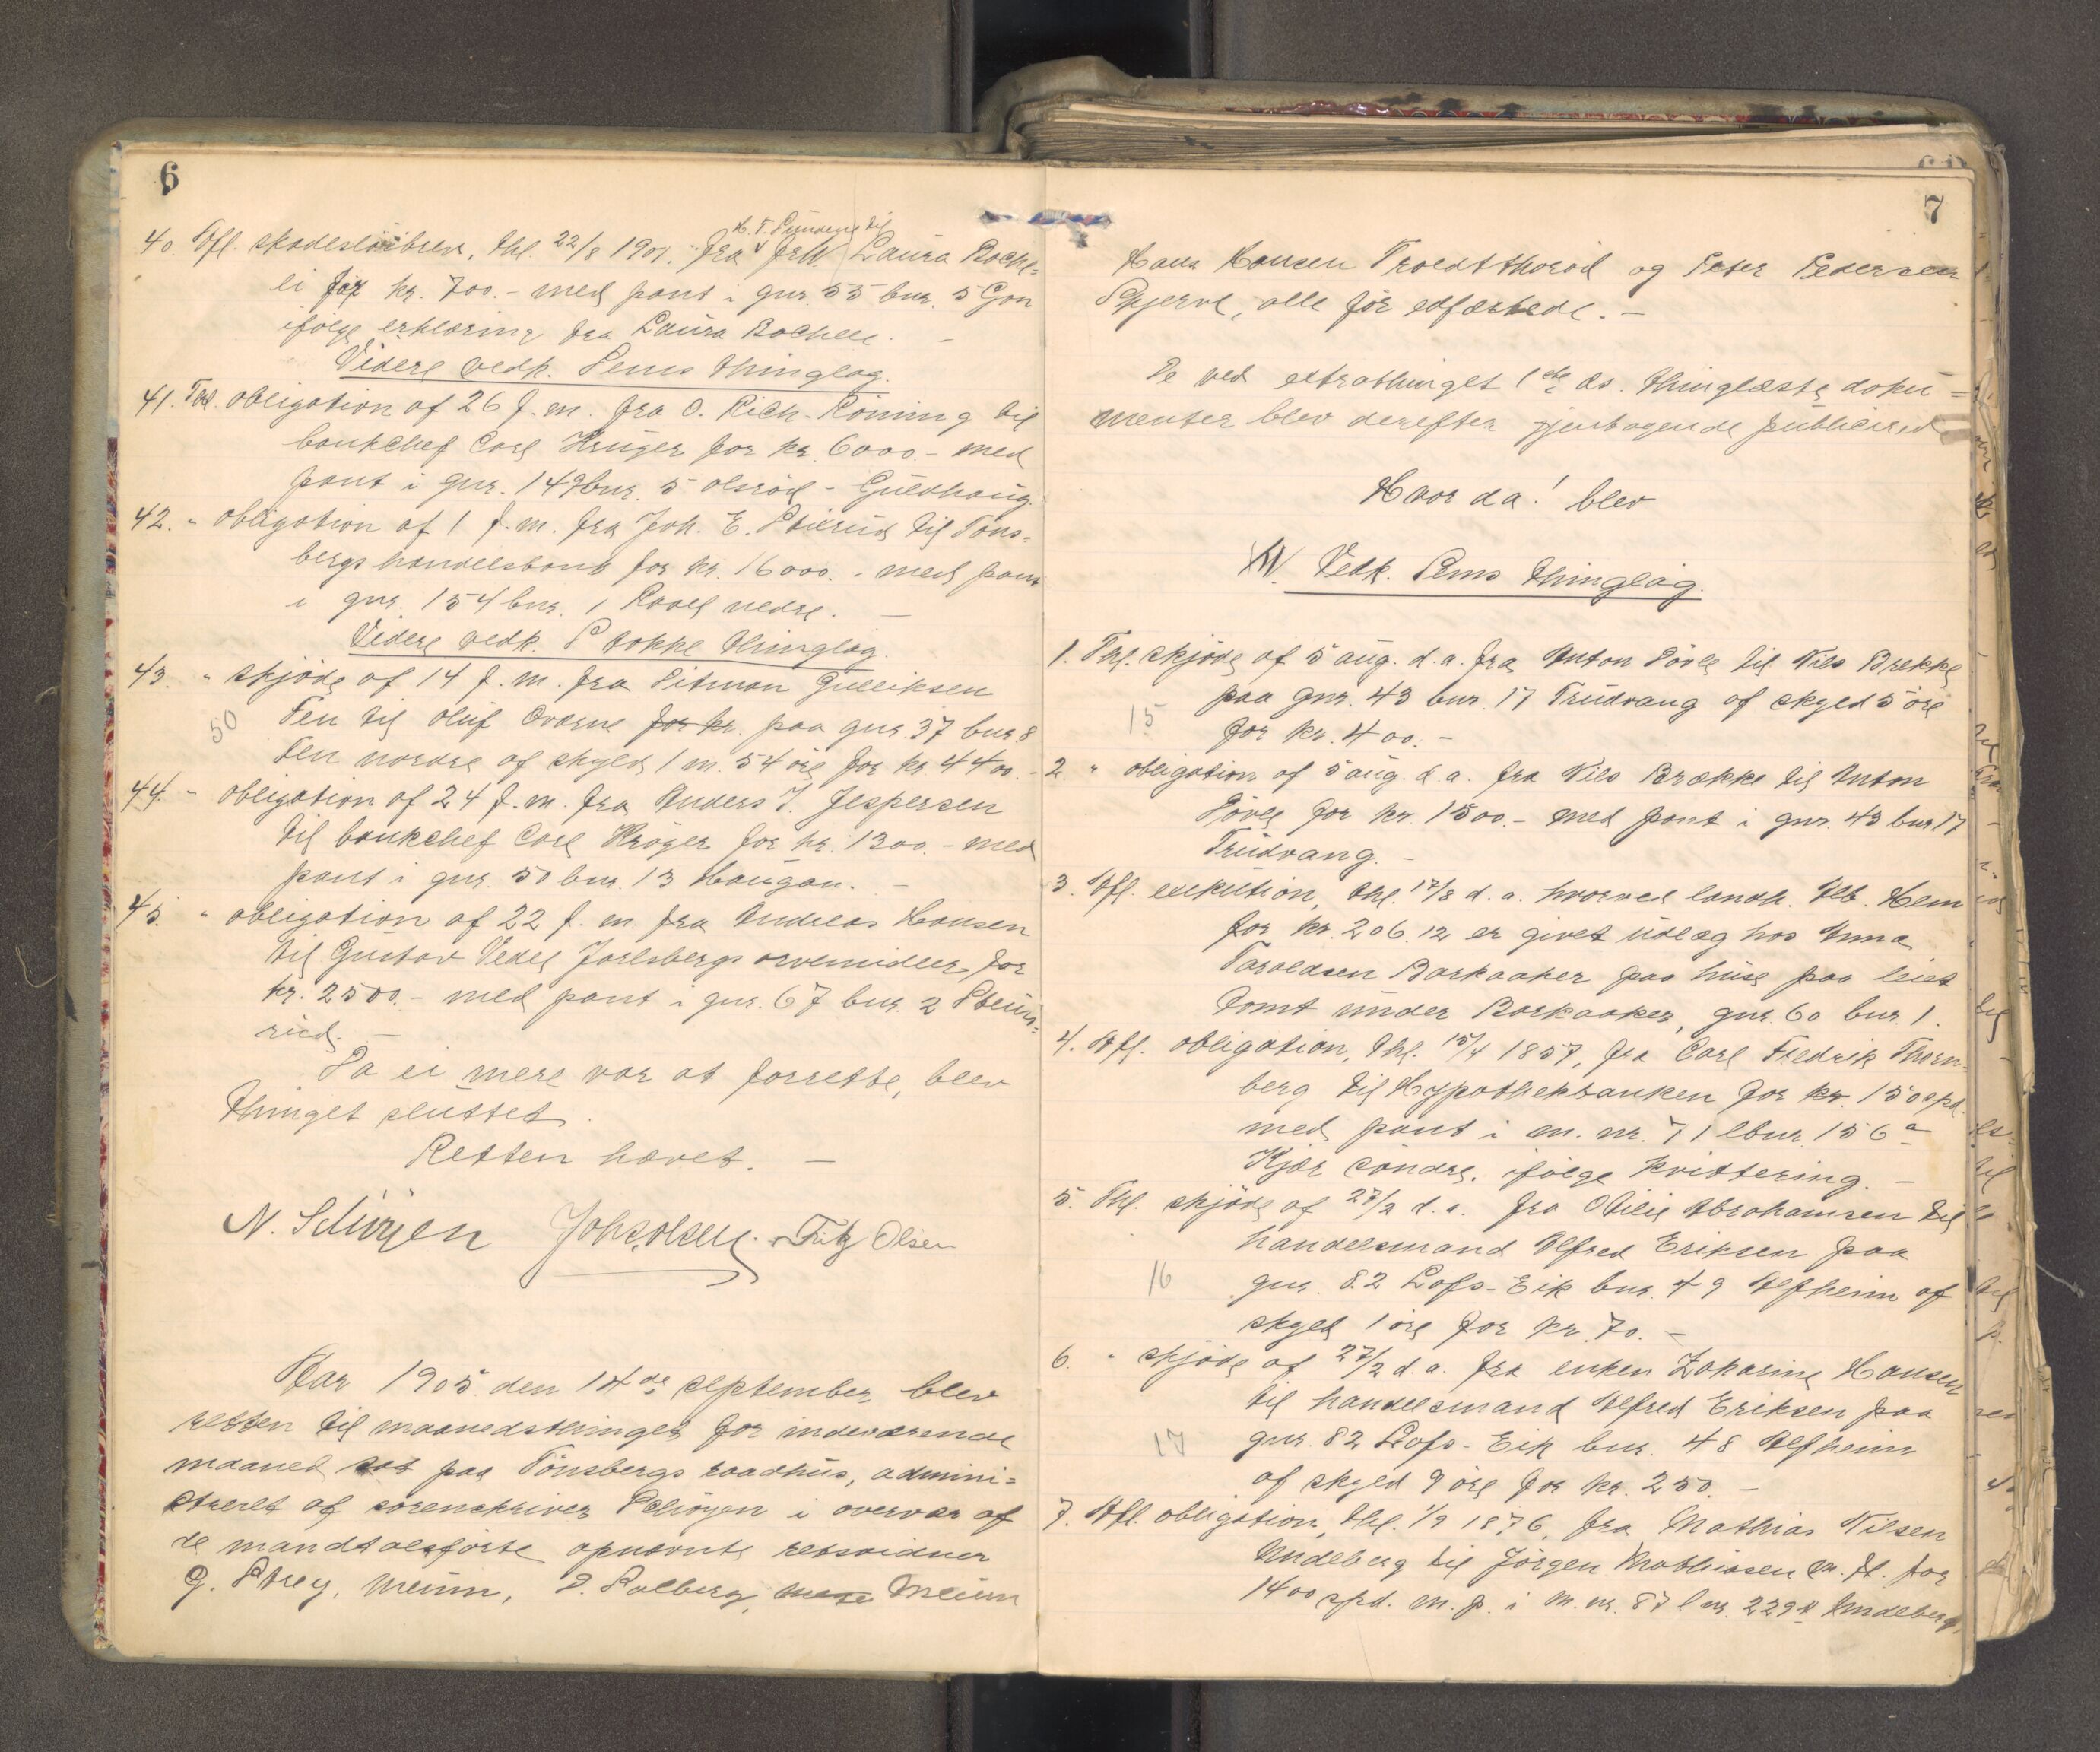 6
40. Afl. skadesløsbrev, thl. 22/8 1901, fra H. T. Lunden til frk. Laura Bache-
li for kr. 700.- med pant i gnr. 55 bnr. 5 Gon
ifølge erklæring fra Laura Bacheli. -
Videre vedk. Sems thinglag.
41. Thl. obligation af 26 f. m. fra O. Rich. Röning til
bankchef Carl Krüger for kr. 6000.- med
pant i gnr. 149 bnr. 5 Olsröd - Guldhaug.
42. " obligation af 1 f. m. fra Joh. E. til Töns-
bergs handelsbank for kr. 16000.- med pant
i gnr. 154 bnr. 1 Raael nedre. -
Videre vedk. Stokke thinglag.
43. " skjøde af 14 f. m. fra Gulliksen
50
Fen til Oluf Qværne for kr. paa gnr. 37 bnr. 8
Fen nordre af skyld 1 m. 54 øre for kr. 4400.-
44. " obligation af 24 f. m. fra Anders J. Jespersen
til bankchef Carl Krøger for kr. 1300.- med
pant i gnr. 50 bnr. 13 Haugan. -
45. " obligation af 22 f. m. fra Andreas Hansen
til Gustav Vedel Jarlsbergs arvemidler for
kr. 2500.- med pant i gnr. 67 bnr. 2 Stens-
rud. -
Da ei mere var at forrette, blev
thinget sluttet.
Retten hævet. -
N. Schiøyen Joh. Olsen. Fritz Olsen
Aar 1905 den 14de september blev
retten til maanedsthinget for indeværende
maaned sat paa Tönsbergs raadhus, admini-
streret af sorenskriver Schiøyen i overvær af
de mandtalsførte opnævnte retsvidner
G. Strey, Meum, P. Solberg, Meum
7
Hans Hansen Troedtthoröd og Peter Pedersen
Skjerve, alle før edfæstede. -
De ved extrathinget 1ste ds. thinglæste doku-
menter blev derefter gjentagende publiceret
Hvor da! blev
IV. Vedk. Sems thinglag.
1. Thl. skjøde af 5 aug. d. a. fra Anton Døvle til Nils Brekke
paa gnr. 43 bnr. 17 Trudvang af skyld 5 øre
15
for kr. 400. -
2. " obligation af 5 aug. d. a. fra Nils Brække til Anton
Døvle for kr. 1500.- med pant i gnr. 43 bnr 17
Trudvang. -
3. Afl. exekution, thl. 17/8 d. a. hvorved landh. Alb. Hem
for kr. 206.12 er givet udlæg hos Anna
Taraldsen Barkaaker paa huse paa leiet
tomt under Barkaaker, gnr. 60 bnr. 1.
4. Afl. obligation, thl. 15/4 1857, fra Carl Fredrik Thorn-
berg til Hypothekbanken for kr. 150 spd.
med pant i m. nr. 71 lbnr. 156 a
Kjær søndre, ifølge kvittering. -
5. Thl. skjøde af 27/2 d. a. fra Otilie Abrahamsen til
handelsmand Alfred Eriksen paa
16
gnr. 82 Lofs-Eik bnr. 49 Alfheim af
skyld 1 øre for kr. 70. -
6. " skjøde af 27/2 d. a. fra enken Zakarine Hansen
til handelsmand Alfred Eriksen paa
17
gnr. 82 Lofs-Eik bnr. 48 Alfheim
af skyld 9 øre for kr. 250. -
7. Afl. obligation, thl. 1/9 1876, fra Mathias Nilsen
Undeberg til Jørgen Mathissen m. fl. for
1400 spd. m. p. i m. nr. 87 lnr. 229 Undeberg,